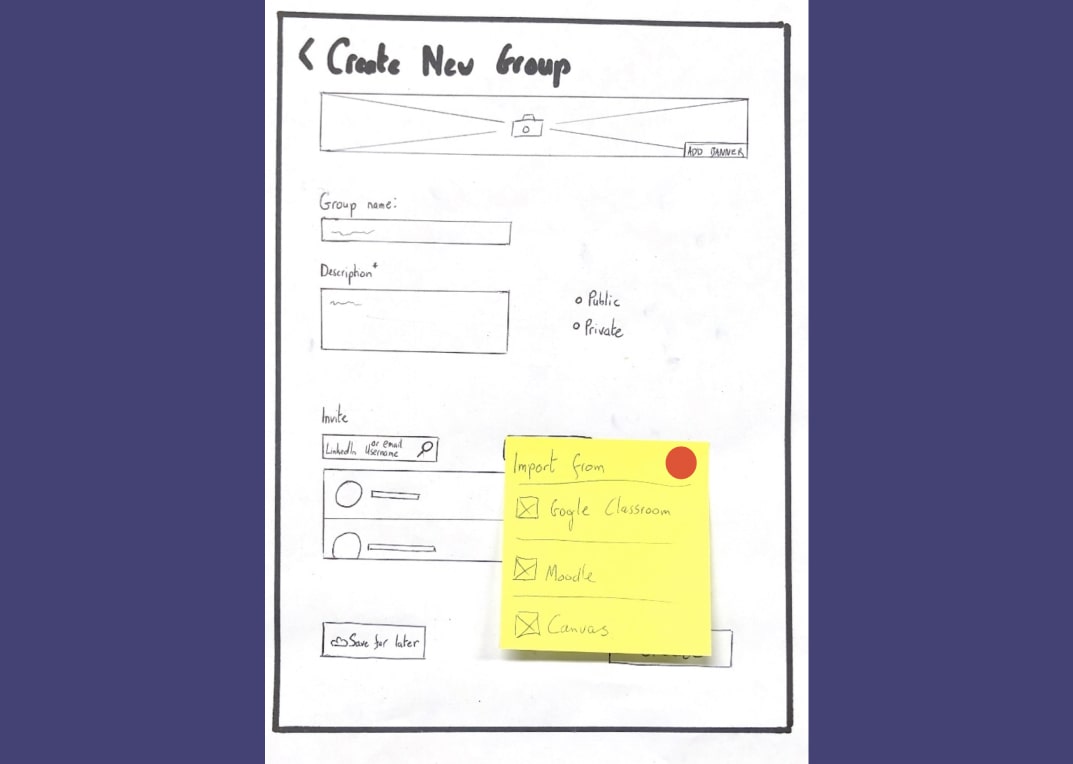 < Create New Group
ADD BANNER
Group name:
Description*
Public
Private
Invite
LinkedIn or email
Username
Import from
Gogle Classroom
Moodle
Canvas
Save for later